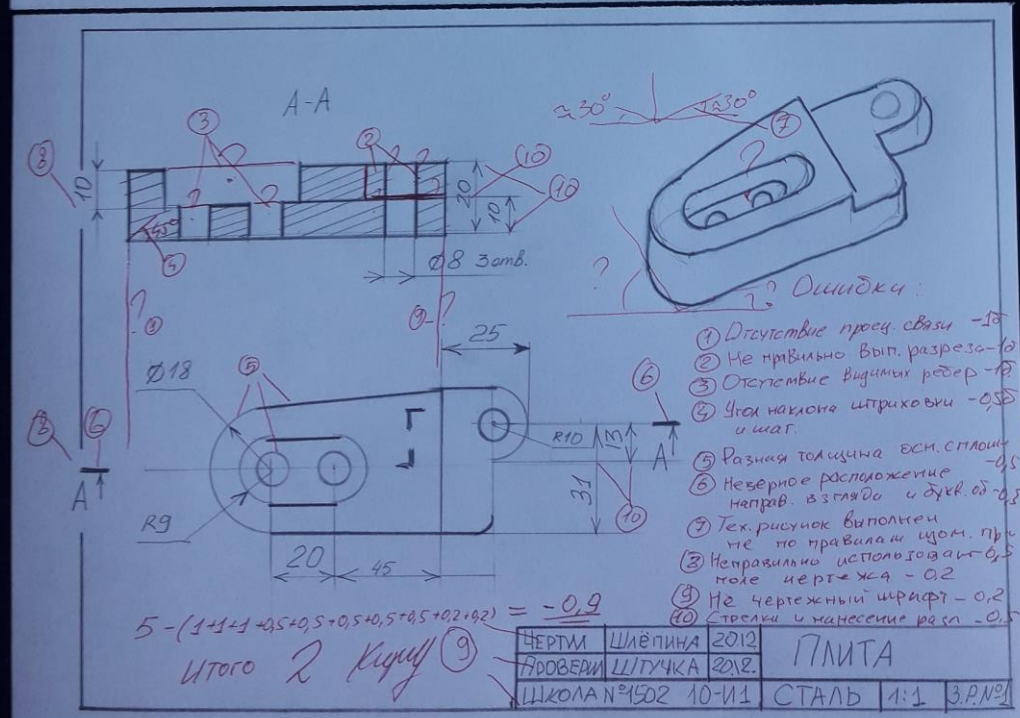 А-А
③
②
⑩
⑧
10
20
10
⑩
45°
④
Ø8 3отв.
≈30°
≈30°
⑦
?
?
?
Ошибки:
① Отсутствие проец. связи -1б
② Не правильно вып. разреза -1б
③ Отсутствие видимых ребер -1б
④ Угол наклона штриховки -0,5б
и шаг.
⑤ Разная толщина осн. сплош -0,5
⑥ Неверное расположение
направ. взгляда и букв. об -0,5
⑦ Тех. рисунок выполнен
не по правилам изом. пр
⑧ Неправильно использован -0,5
поле чертежа -0.2
⑨ Не чертежный шрифт -0,2
⑩ Стрелки и нанесение разл -0.5
?
?
⑨
25
Ø18
⑤
⑥
⑧
⑥
А
R10
13
А
31
⑩
R9
20
45
5-(1+1+1+0,5+0,5+0,5+0,5+0,5+0,2+0,2) = -0,9
Итого 2
⑨
ЧЕРТИЛ ШЛЁПИНА 20.12
ПРОВЕРИЛ ШТУЧКА 20.12.
ПЛИТА
ШКОЛА №1502 10-И1 СТАЛЬ 1:1 З.Р.№1